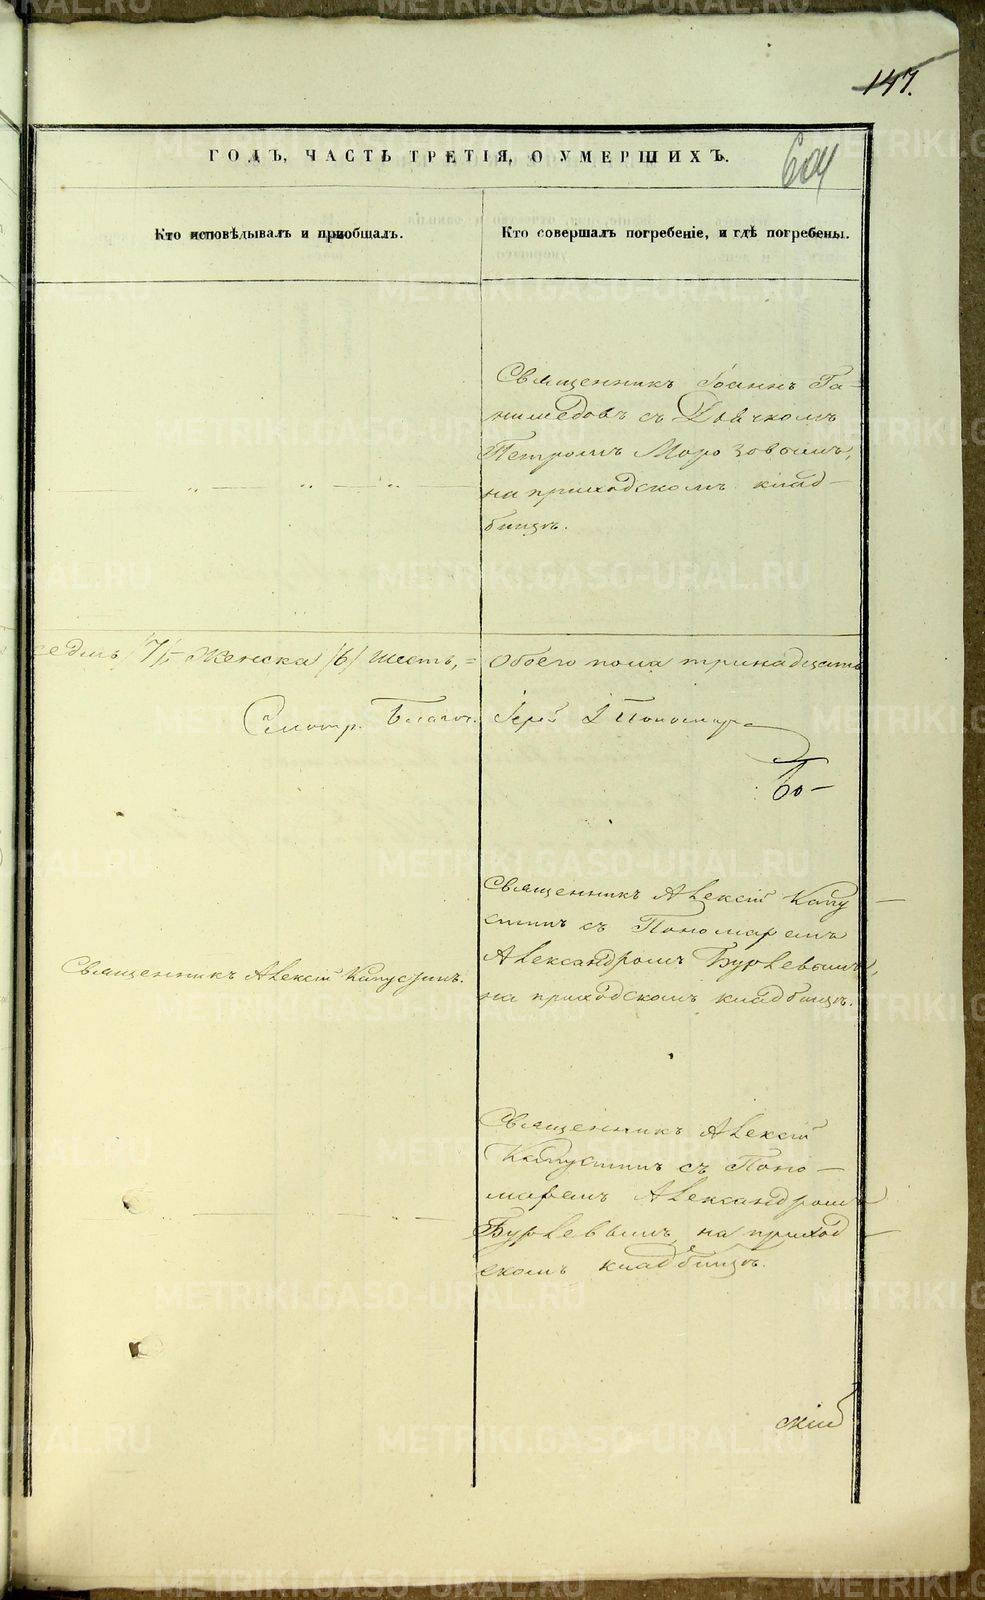 147.
604
ГОДЪ, ЧАСТЬ ТРЕТІЯ, О УМЕРШИХЪ.
Кто исповѣдывалъ и пріобщалъ.
Кто совершалъ погребеніе, и гдѣ погребены.
Священникъ Іоаннъ Га-
нимедовъ съ Дьячкомъ
Петромъ Морозовымъ,
на приходскомъ клад-
бищѣ.
седмь /7/, Женска /6/ шесть, =
Обоего пола тринадцать
Смотр. Благоч. Іерей І Пономарев
Бо-
Священникъ Алексій Капу-
стинъ съ Пономаремъ
Александромъ Бурлевымъ,
на приходскомъ кладбищѣ.
Священникъ Алексій Капустинъ.
Священникъ Алексій
Капустинъ съ Поно-
маремъ Александромъ
Бурлевымъ, на приход-
скомъ кладбищѣ.
METRIKI.GASO-URAL.RU